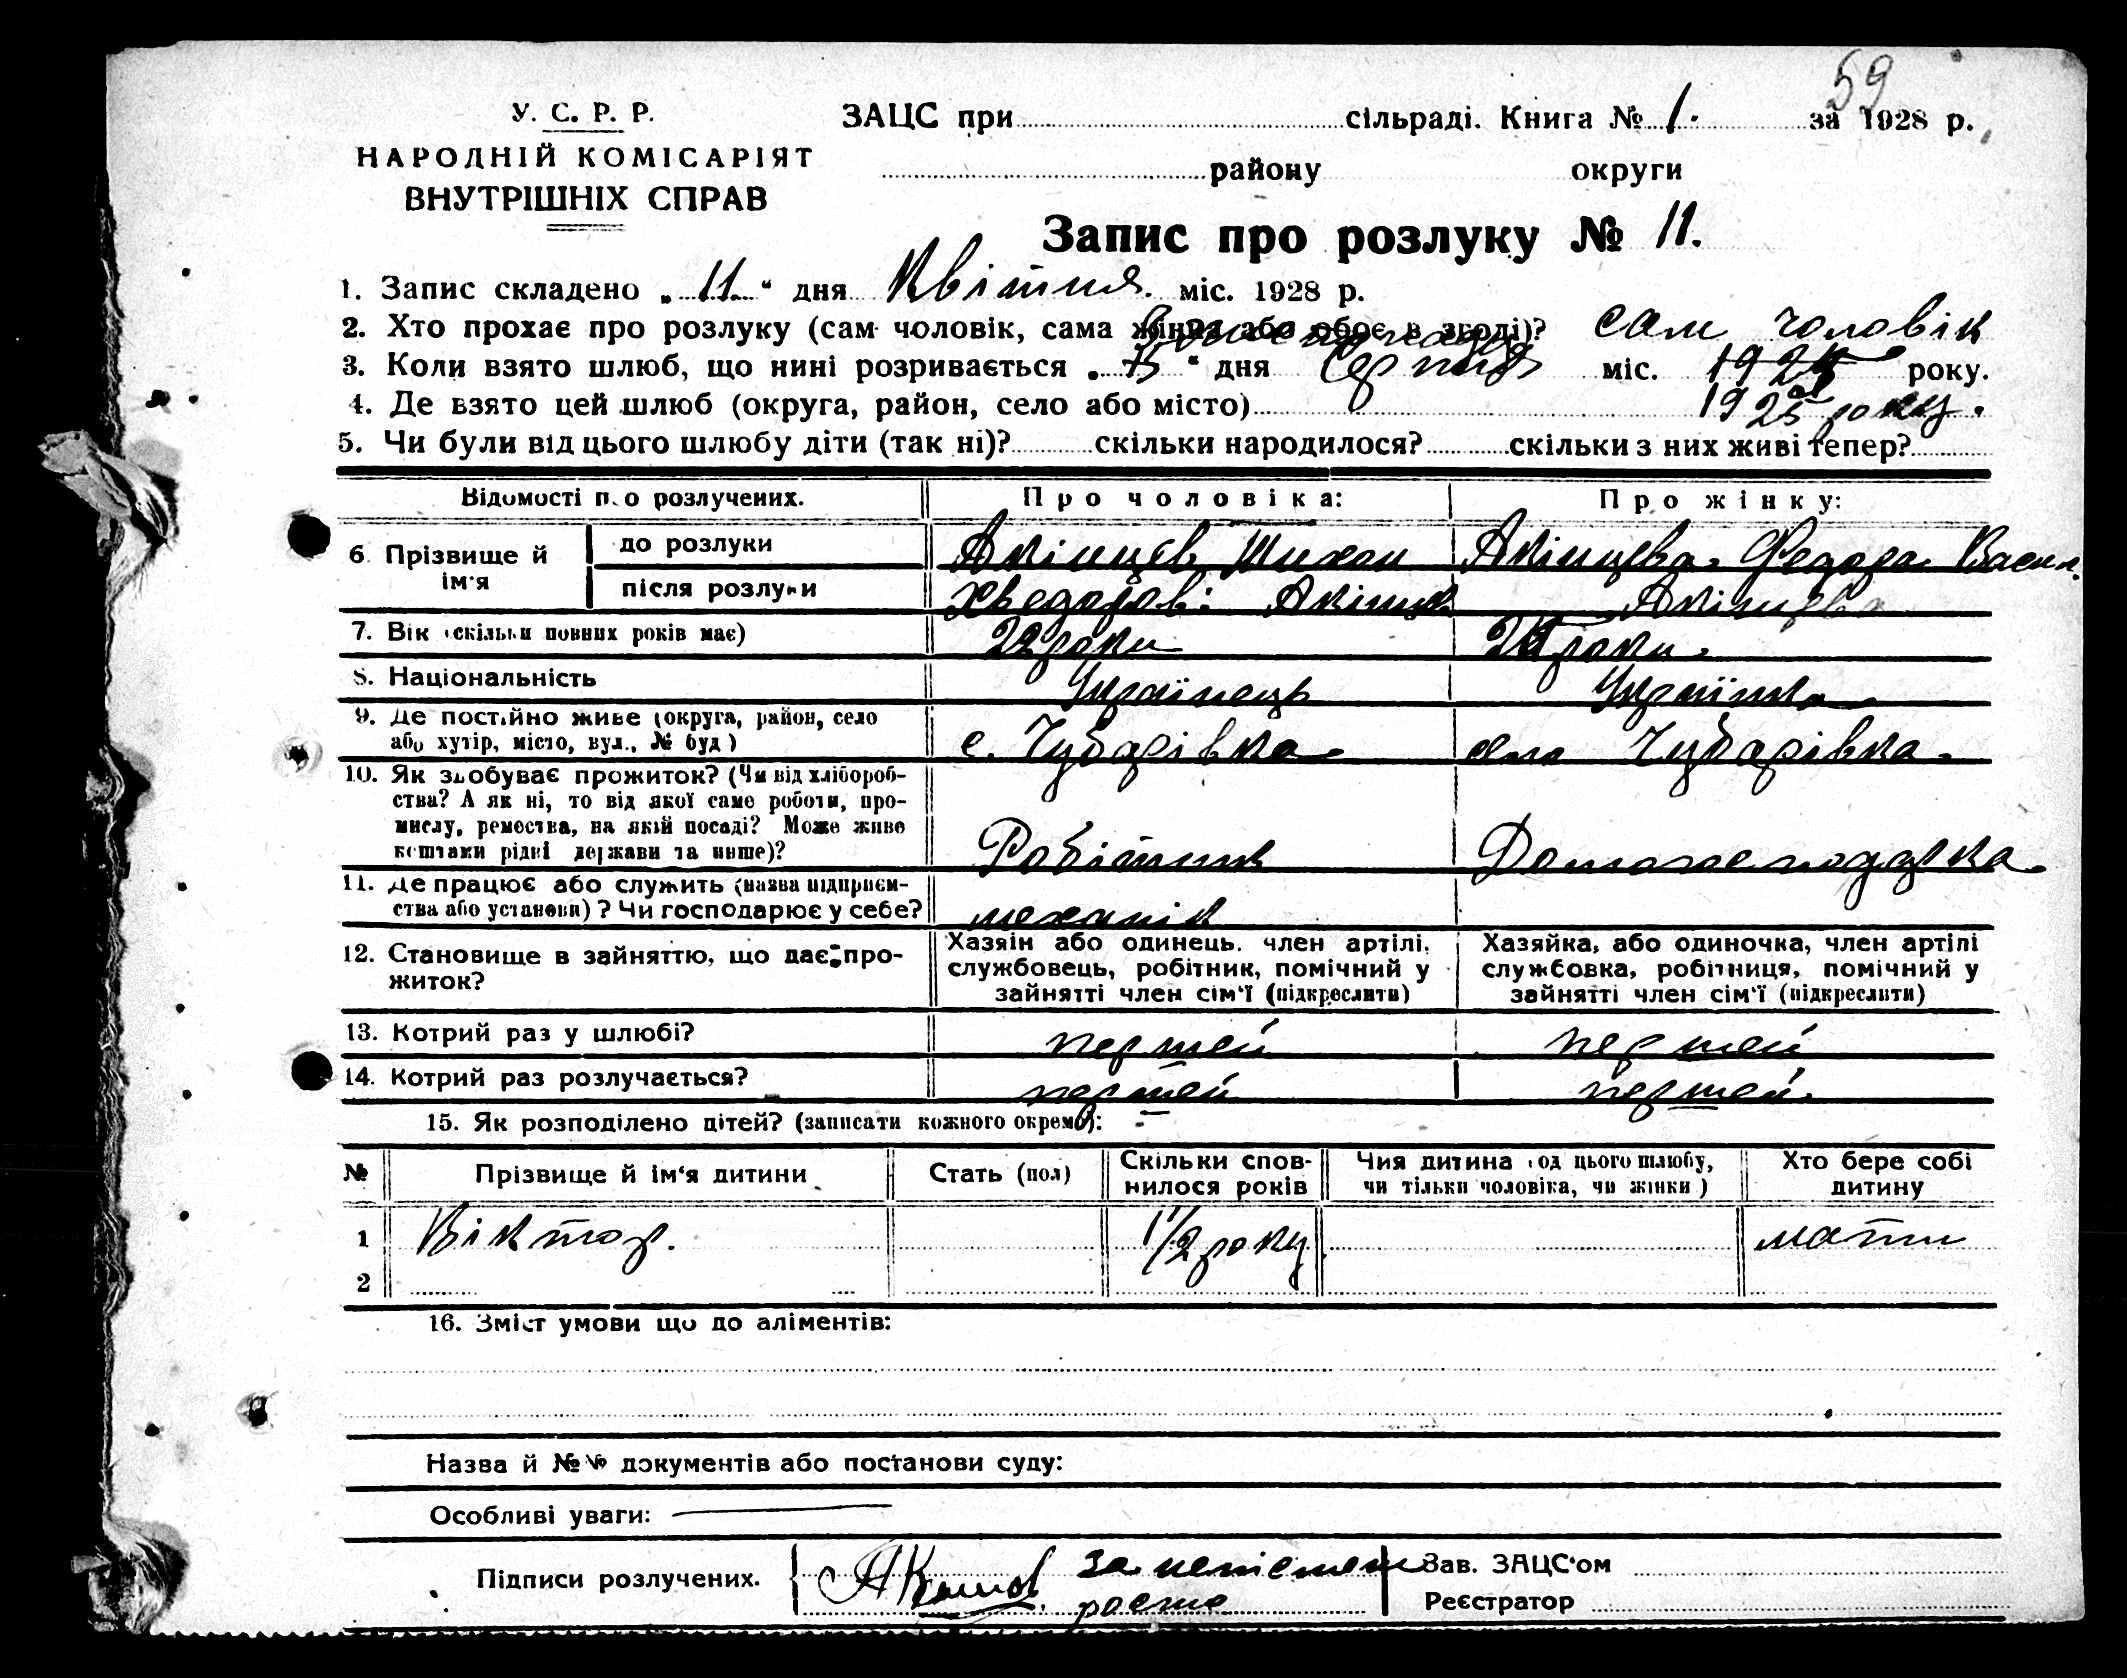 59
У. С. Р. Р.
НАРОДНІЙ КОМІСАРІЯТ
ВНУТРІШНІХ СПРАВ
ЗАЦС при сільраді. Книга № 1. за 1928 р.
району округи
Запис про розлуку № 11.
1. Запис складено „ 11 “ дня Квітня міс. 1928 р.
2. Хто прохає про розлуку (сам чоловік, сама жінка або обоє в згоді)? сам чоловік
3. Коли взято шлюб, що нині розривається „ “ дня Серпня міс. року.
4. Де взято цей шлюб (округа, район, село або місто) 1925 року.
5. Чи були від цього шлюбу діти (так ні)? скільки народилося? скільки з них живі тепер?
Відомості про розлучених. Про чоловіка: Про жінку:
6. Прізвище й ім'я
до розлуки Акінцєв Тихон Акінцева Федора Васил.
після розлуки Хведоров: Акінцев Акінцева
7. Вік (скільки повних років має) 22 роки роки.
8. Національність Українець Українка
9. Де постійно живе (округа, район, село або хутір, місто, вул., № буд) с. Чубарівка село Чубарівка.
10. Як здобуває прожиток? (Чи від хлібороб-
ства? А як ні, то від якої саме роботи, про-
мислу, ремества, на якій посаді? Може живе
коштами рідні держави та инше)? Робітник Домогосподарка.
11. Де працює або служить (назва підприєм-
ства або установи)? Чи господарює у себе? механік
12. Становище в зайняттю, що дає про-
житок?
Хазяїн або одинець, член артілі,
службовець, робітник, помічний у
зайнятті член сім'ї (підкреслити)
Хазяйка, або одиночка, член артілі
службовка, робітниця, помічний у
зайнятті член сім'ї (підкреслити)
13. Котрий раз у шлюбі? першей першей
14. Котрий раз розлучається? першей першей.
15. Як розподілено дітей? (записати кожного окремо): —
№ Прізвище й ім'я дитини Стать (пол) Скільки спов-
нилося років Чия дитина (од цього шлюбу,
чи тільки чоловіка, чи жінки) Хто бере собі
дитину
1 Віктор. 1 1/2 року мати
2
16. Зміст умови що до аліментів:
Назва й №№ документів або постанови суду:
Особливі уваги: —
Підписи розлучених.
Зав. ЗАЦС'ом
Реєстратор